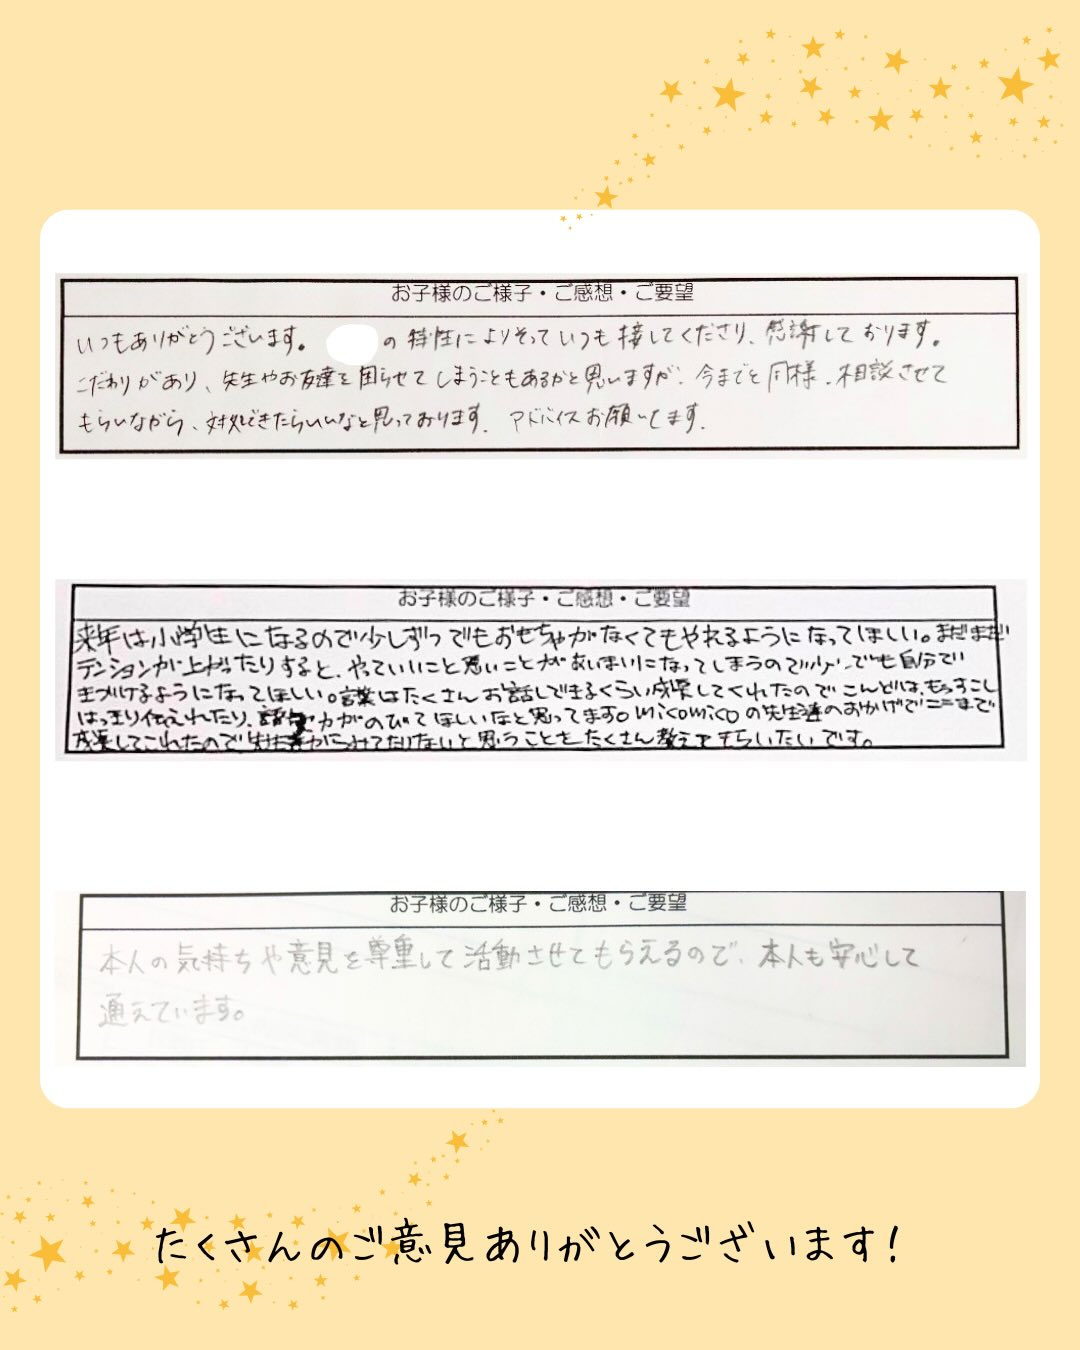 お子様のご様子・ご感想・ご要望
いつもありがとうございます。 の特性によりそっていつも接してくださり、感謝しております。
こだわりがあり、先生やお友達を困らせてしまうこともあるかと思いますが、今までと同様、相談させて
もらいながら、対処できたらいいなと思っております。アドバイスお願いします。
お子様のご様子・ご感想・ご要望
来年は小学生になるので少しずつでもおもちゃがなくてもやれるようになってほしい。まだまだ
テンションが上がったりすると、やっていいこと悪いことがあいまいになってしまうので少しでも自分で
気づけるようになってほしい。言葉はたくさんお話しできるくらい成長してくれたのでこんどは、もうすこし
はっきり伝えれたり、 力がのびてほしいなと思ってます。micomicoの先生達のおかげでここまで
成長してこれたので
たくさん教えてもらいたいです。
お子様のご様子・ご感想・ご要望
本人の気持ちや意見を尊重して活動させてもらえるので、本人も安心して
通えています。
たくさんのご意見ありがとうございます!